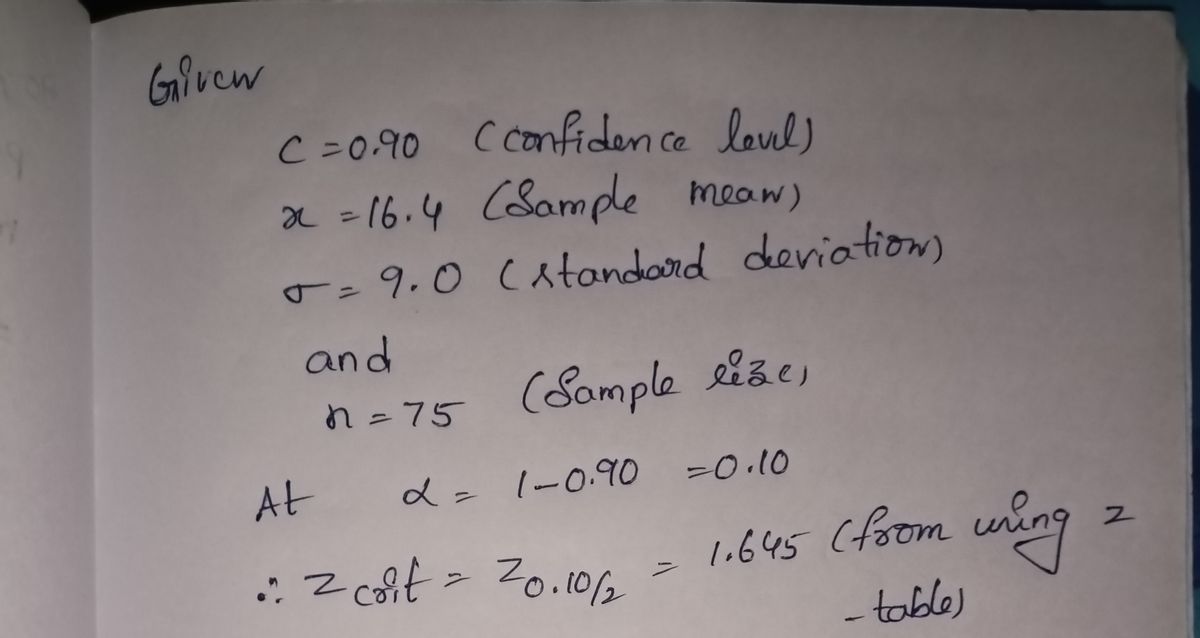 Given
C = 0.90 (confidence level)
x = 16.4 (Sample mean)
σ = 9.0 (standard deviation)
and
n = 75 (Sample size)
At α = 1-0.90 = 0.10
∴ Z crit = Z0.10/2 = 1.645 (from using z
- table)